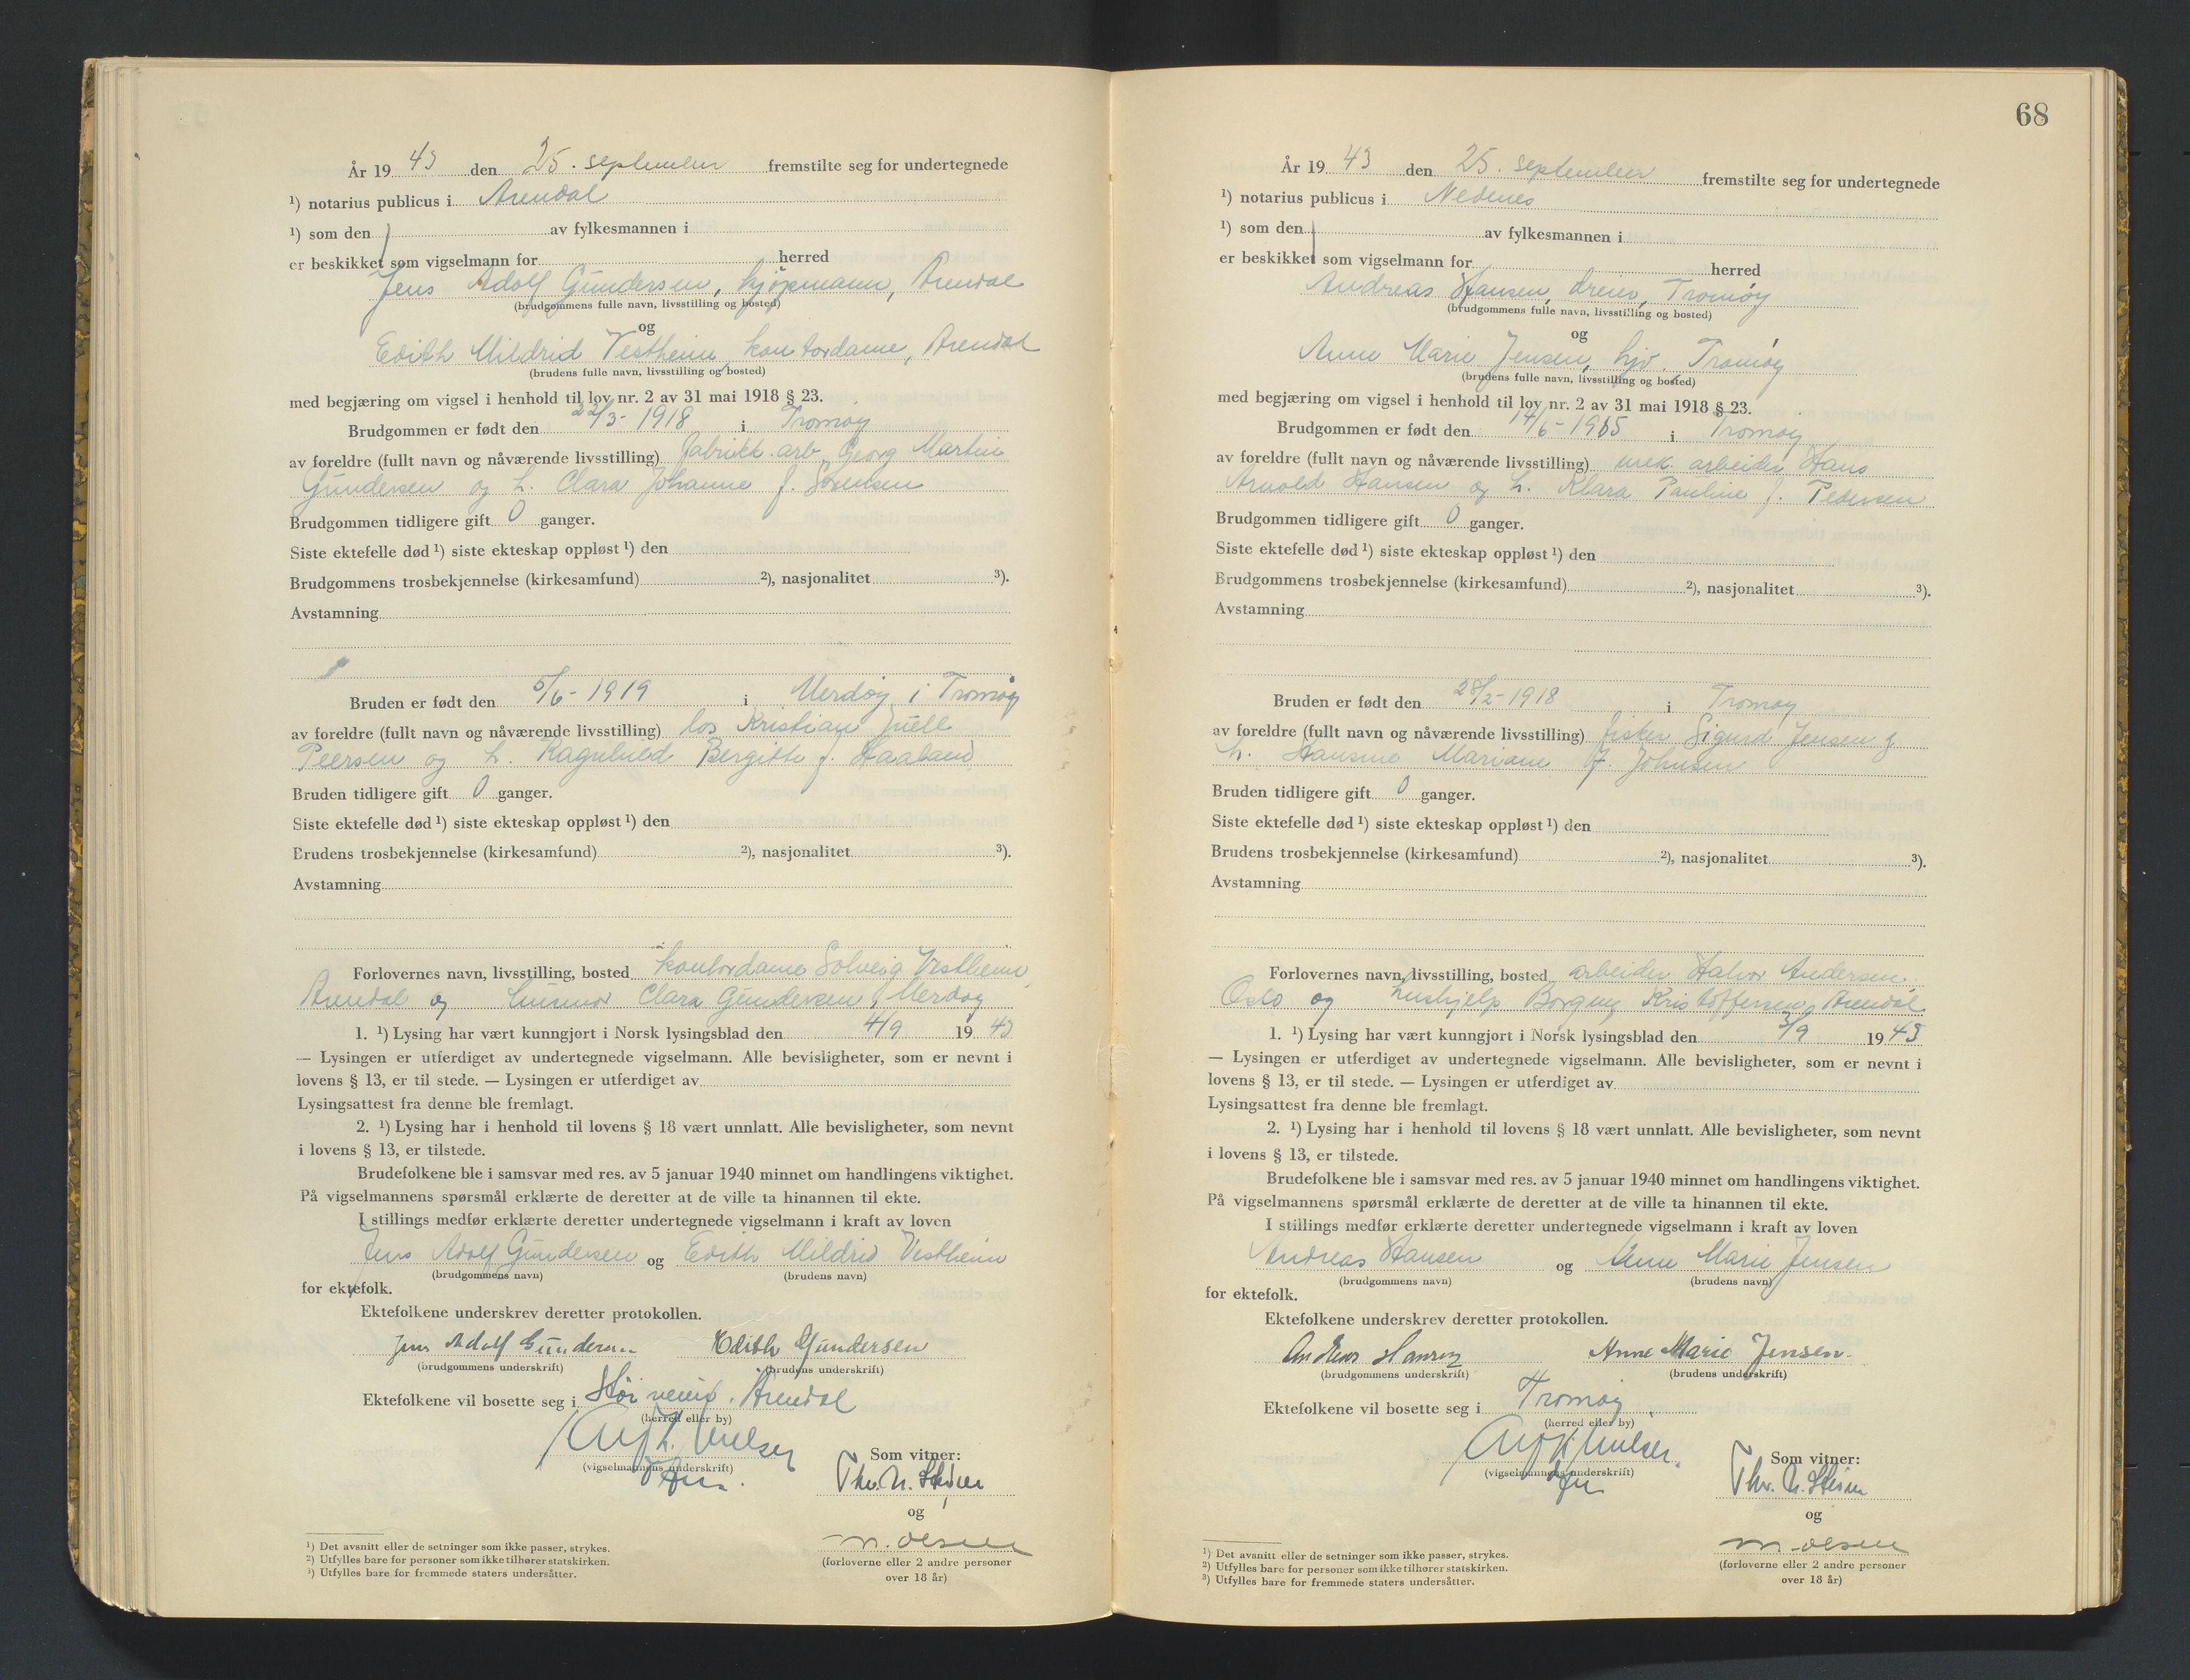 År 19 43 den 25. september fremstilte seg for undertegnede
¹) notarius publicus i Arendal
¹) som den av fylkesmannen i
er beskikket som vigselmann for herred
Jens Adolf Gundersen, kjøpmann, Arendal
(brudgommens fulle navn, livsstilling og bosted)
og
Edith Mildrid Vestheim, kontordame, Arendal
(brudens fulle navn, livsstilling og bosted)
med begjæring om vigsel i henhold til lov nr. 2 av 31 mai 1918 § 23.
Brudgommen er født den 22/3- 1918 i Tromøy
av foreldre (fullt navn og nåværende livsstilling) fabrikk.arb. Georg Martin
Gundersen og h. Clara Johanne f. Sørensen
Brudgommen tidligere gift 0 ganger.
Siste ektefelle død ¹) siste ekteskap oppløst ¹) den
Brudgommens trosbekjennelse (kirkesamfund) ²), nasjonalitet ³).
Avstamning
Bruden er født den 5/6- 1919 i Merdøy i Tromøy
av foreldre (fullt navn og nåværende livsstilling) los Kristian Juell
Peersen og h. Ragnhild Bergitte f. Haaland
Bruden tidligere gift 0 ganger.
Siste ektefelle død ¹) siste ekteskap oppløst ¹) den
Brudens trosbekjennelse (kirkesamfund) ²), nasjonalitet ³).
Avstamning
Forlovernes navn, livsstilling, bosted kontordame Solveig Vestheim,
Arendal og husmor Clara Gundersen, Merdøy
1. ¹) Lysing har vært kunngjort i Norsk lysingsblad den 4/9 19 43
— Lysingen er utferdiget av undertegnede vigselmann. Alle bevisligheter, som er nevnt i
lovens § 13, er til stede. — Lysingen er utferdiget av
Lysingsattest fra denne ble fremlagt.
2. ¹) Lysing har i henhold til lovens § 18 vært unnlatt. Alle bevisligheter, som nevnt
i lovens § 13, er tilstede.
Brudefolkene ble i samsvar med res. av 5 januar 1940 minnet om handlingens viktighet.
På vigselmannens spørsmål erklærte de deretter at de ville ta hinannen til ekte.
I stillings medfør erklærte deretter undertegnede vigselmann i kraft av loven
Jens Adolf Gundersen og Edith Mildrid Vestheim
(brudgommens navn) (brudens navn)
for ektefolk.
Ektefolkene underskrev deretter protokollen.
Jens Adolf Gundersen Edith Gundersen
(brudgommens underskrift) (brudens underskrift)
Ektefolkene vil bosette seg i Arendal
(herred eller by)
(vigselmannens underskrift)
Som vitner:
Thv. N.
og
M. Olsen
(forloverne eller 2 andre personer
over 18 år)
¹) Det avsnitt eller de setninger som ikke passer, strykes.
²) Utfylles bare for personer som ikke tilhører statskirken.
³) Utfylles bare for fremmede staters undersåtter.
68
År 19 43 den 25. september fremstilte seg for undertegnede
¹) notarius publicus i Nedenes
¹) som den av fylkesmannen i
er beskikket som vigselmann for herred
Andreas Hansen, dreier, Tromøy
(brudgommens fulle navn, livsstilling og bosted)
og
Anne Marie Jensen, hjv. Tromøy
(brudens fulle navn, livsstilling og bosted)
med begjæring om vigsel i henhold til lov nr. 2 av 31 mai 1918 § 23.
Brudgommen er født den 14/6- 1915 i Tromøy
av foreldre (fullt navn og nåværende livsstilling) mek. arbeider Hans
Arnold Hansen og h. Klara Pauline f. Pedersen
Brudgommen tidligere gift 0 ganger.
Siste ektefelle død ¹) siste ekteskap oppløst ¹) den
Brudgommens trosbekjennelse (kirkesamfund) ²), nasjonalitet ³).
Avstamning
Bruden er født den 28/2- 1918 i Tromøy
av foreldre (fullt navn og nåværende livsstilling) fisker Sigurd Jensen og
h. Hansine Mariane f. Johnsen
Bruden tidligere gift 0 ganger.
Siste ektefelle død ¹) siste ekteskap oppløst ¹) den
Brudens trosbekjennelse (kirkesamfund) ²), nasjonalitet ³).
Avstamning
Forlovernes navn, livsstilling, bosted arbeider Halvor Andersen
Oslo og hushjelp Borgny Kristoffersen, Arendal
1. ¹) Lysing har vært kunngjort i Norsk lysingsblad den 3/9 19 43
— Lysingen er utferdiget av undertegnede vigselmann. Alle bevisligheter, som er nevnt i
lovens § 13, er til stede. — Lysingen er utferdiget av
Lysingsattest fra denne ble fremlagt.
2. ¹) Lysing har i henhold til lovens § 18 vært unnlatt. Alle bevisligheter, som nevnt
i lovens § 13, er tilstede.
Brudefolkene ble i samsvar med res. av 5 januar 1940 minnet om handlingens viktighet.
På vigselmannens spørsmål erklærte de deretter at de ville ta hinannen til ekte.
I stillings medfør erklærte deretter undertegnede vigselmann i kraft av loven
Andreas Hansen og Anne Marie Jensen
(brudgommens navn) (brudens navn)
for ektefolk.
Ektefolkene underskrev deretter protokollen.
Andreas Hansen Anne Marie Jensen.
(brudgommens underskrift) (brudens underskrift)
Ektefolkene vil bosette seg i Tromøy
(herred eller by)
(vigselmannens underskrift)
Som vitner:
Thv. N.
og
M. Olsen
(forloverne eller 2 andre personer
over 18 år)
¹) Det avsnitt eller de setninger som ikke passer, strykes.
²) Utfylles bare for personer som ikke tilhører statskirken.
³) Utfylles bare for fremmede staters undersåtter.